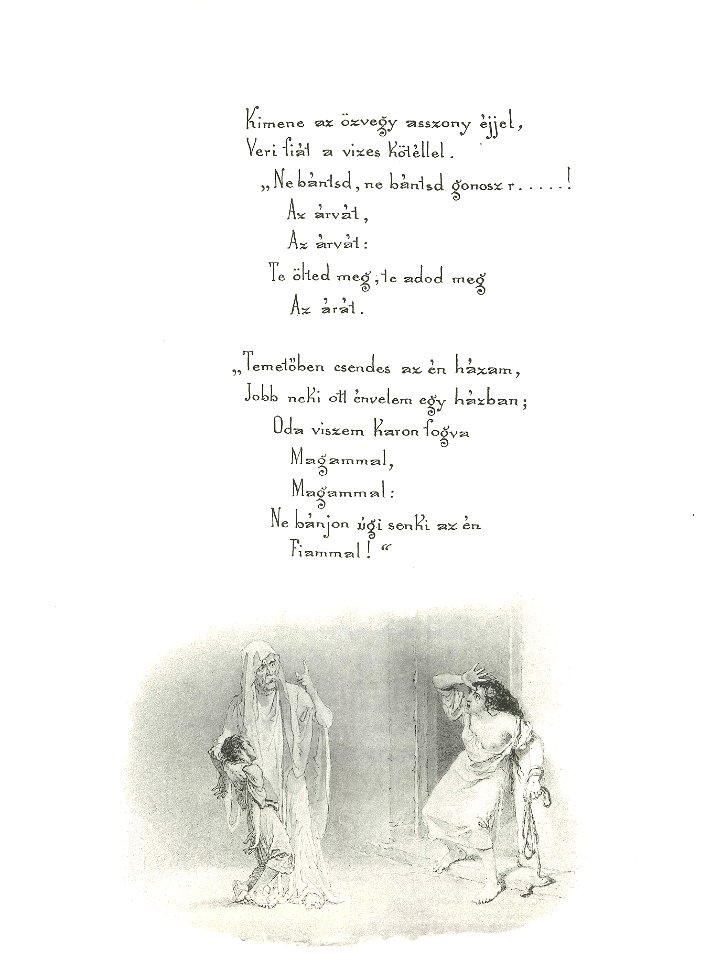 Kimene az özvegy asszony éjjel,
Veri fiát a vizes kötéllel.
„Ne bántsd, ne bántsd gonosz r.....!
Az árvát,
Az árvát:
Te ölted meg, te adod meg
Az árát.
„Temetőben csendes az én házam,
Jobb neki ott énvelem egy házban;
Oda viszem karon fogva
Magammal,
Magammal:
Ne bánjon úgi senki az én
Fiammal!“